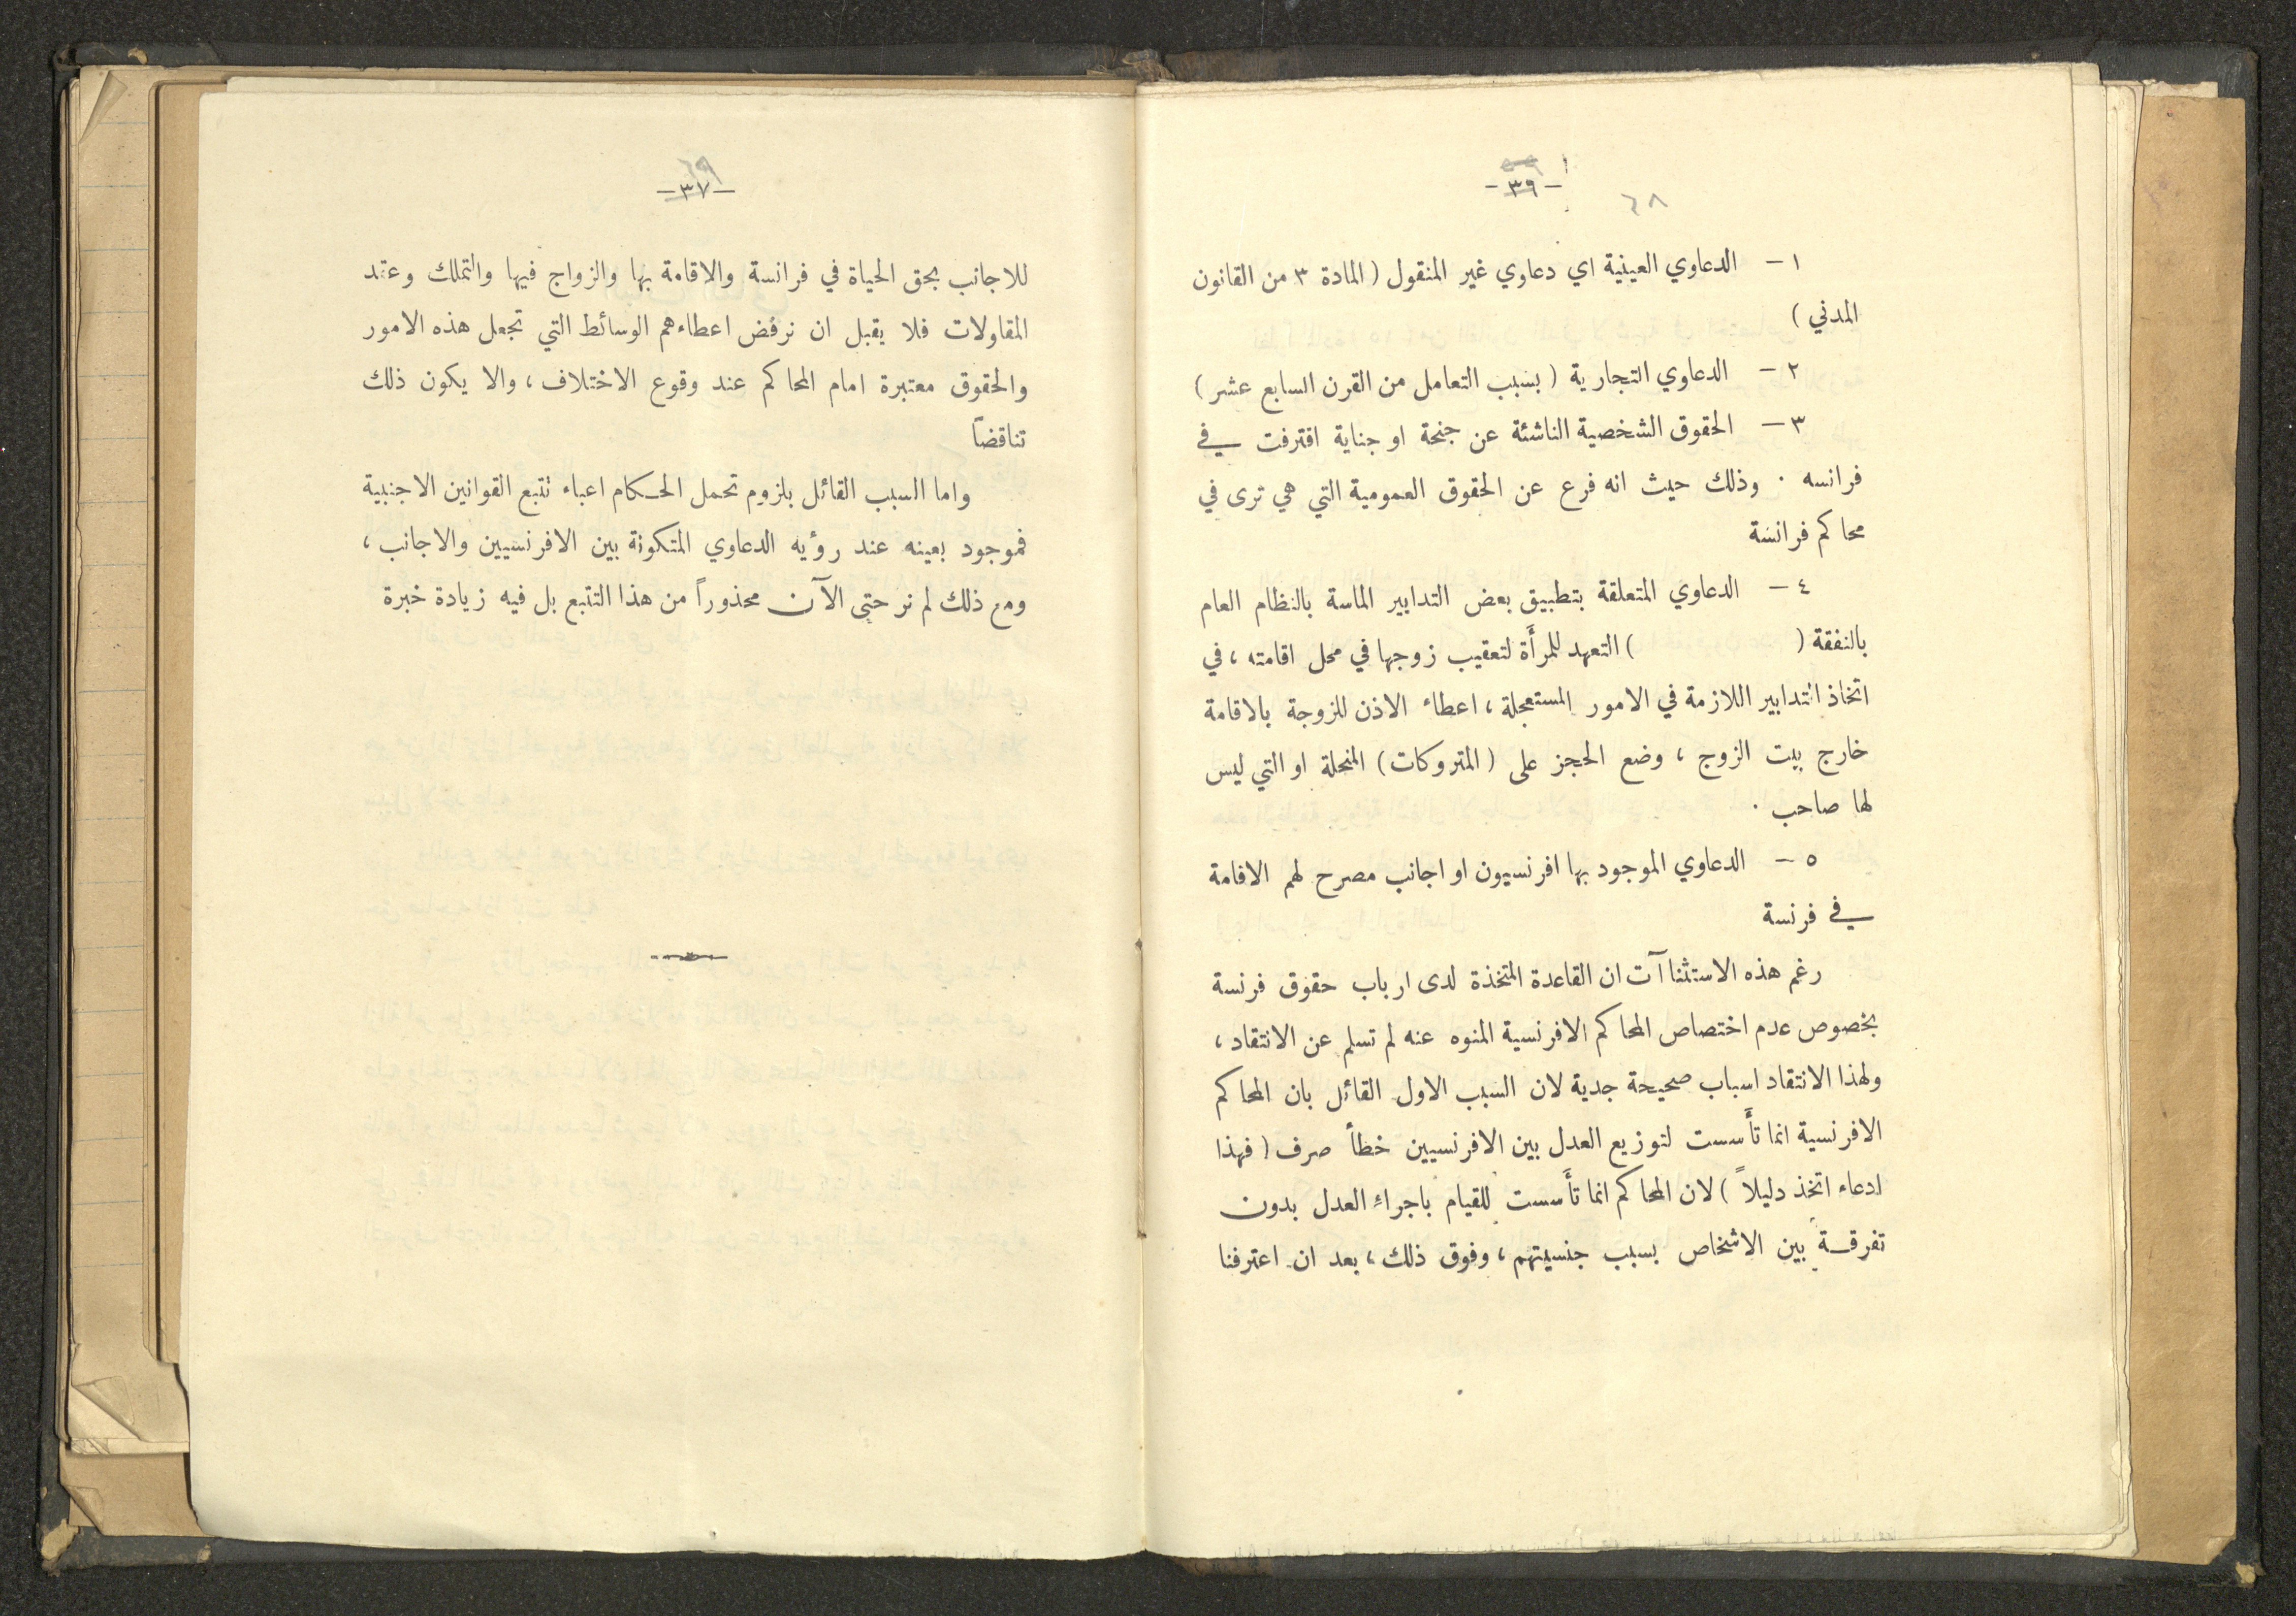 -٣٩-
٦٨
١ - الدعاوي العينية اي دعاوي غير المنقول ( المادة ٣ من القانون
المدني )
٢ - الدعاوي التجارية ( بسبب التعامل من القرن السابع عشر )
٣ - الحقوق الشخصية الناشئة عن جنحة او جناية اقترفت في
فرانسه . وذلك حيث انه فرع عن الحقوق العمومية التي هي ترى في
محاكم فرانسة
٤ - الدعاوي المتعلقة بتطبيق بعض التدابير الماسة بالنظام العام
بالنفقة ( ) التعهد للمرأة لتعقيب زوجها في محل اقامته ، في
اتخاذ التدابير اللازمة في الامور المستعجلة ، اعطاء الاذن للزوجة بالاقامة
خارج بيت الزوج ، وضع الحجز على ( المتروكات ) المنحلة او التي ليس
لها صاحب .
٥ - الدعاوي الموجود بها افرنسيون او اجانب مصرح لهم الاقامة
في فرنسة
رغم هذه الاستثناآت ان القاعدة المتخذة لدى ارباب حقوق فرنسة
بخصوص عدم اختصاص المحاكم الافرنسية المنوه عنه لم تسلم عن الانتقاد ،
ولهذا الانتقاد اسباب صحيحة جدية لان السبب الاول القائل بان المحاكم
الافرنسية انما تأسست لتوزيع العدل بين الافرنسيين خطأ صرف ( فهذا
ادعاء اتخذ دليلاً ) لان المحاكم انما تأسست للقيام باجراء العدل بدون
تفرقة بين الاشخاص بسبب جنسيتهم ، وفوق ذلك ، بعد ان اعترفنا
٦٩
-٣٧-
للاجانب بحق الحياة في فرانسة والاقامة بها والزواج فيها والتملك وعقد
المقاولات فلا يقبل ان نرفض اعطاءهم الوسائط التي تجعل هذه الامور
والحقوق معتبرة امام المحاكم عند وقوع الاختلاف ، والا يكون ذلك
تناقضاً
واما السبب القائل بلزوم تحمل الحكام اعباء تتبع القوانين الاجنبية
فموجود بعينه عند رؤيه الدعاوي المتكونة بين الافرنسيين والاجانب ،
ومع ذلك لم نر حتى الآن محذوراً من هذا التتبع بل فيه زيادة خبرة